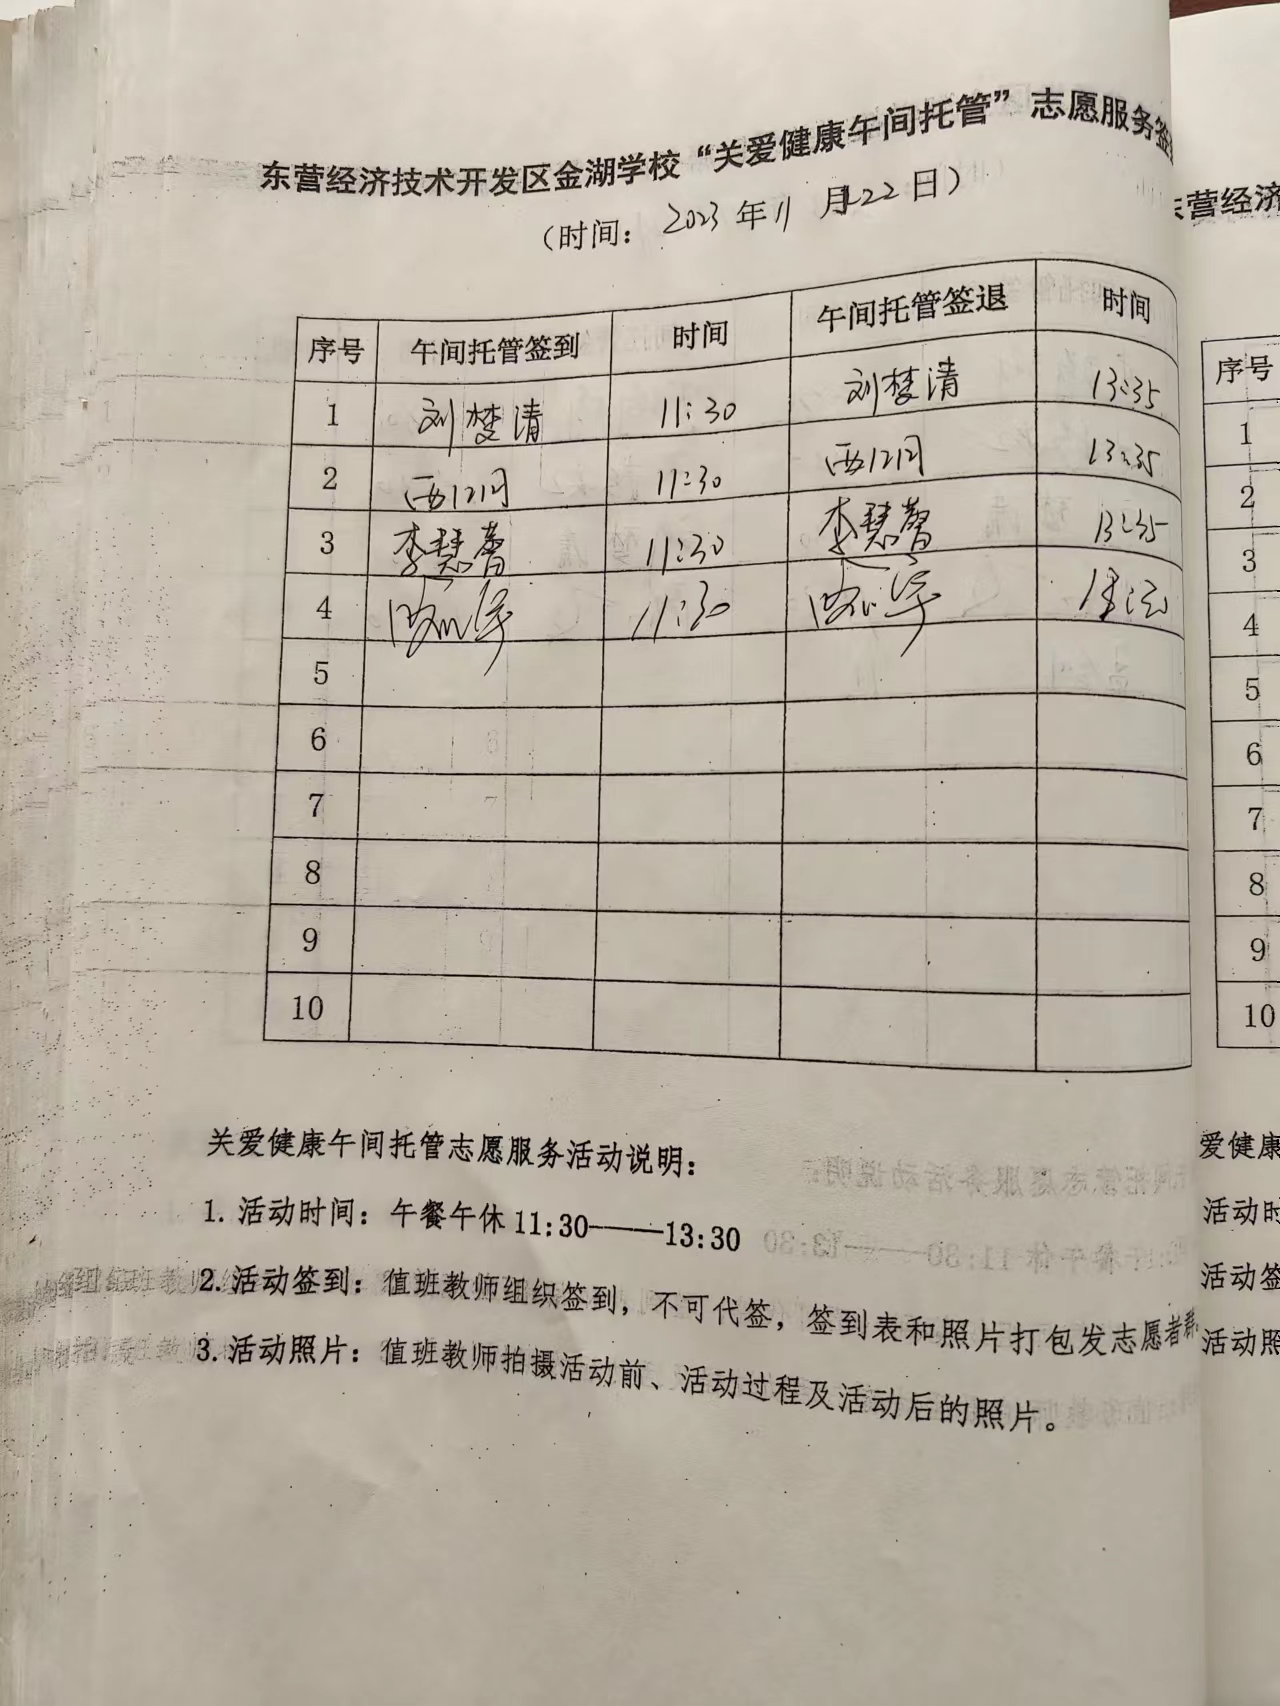 东营经济技术开发区金湖学校“关爱健康午间托管”志愿服务签
（时间： 2023 年 11 月 22 日）
序号 午间托管签到 时间 午间托管签退 时间
1 刘梦清 11:30 刘梦清 13:35
2 11:30 13:35
3 李慧馨 11:30 李慧馨 13:35
4 11:30
5
6
7
8
9
10
关爱健康午间托管志愿服务活动说明：
1. 活动时间：午餐午休 11:30——13:30
2. 活动签到：值班教师组织签到，不可代签，签到表和照片打包发志愿者群
3. 活动照片：值班教师拍摄活动前、活动过程及活动后的照片。
东营经济
序号
1
2
3
4
5
6
7
8
9
10
爱健康
活动时
活动签
活动照